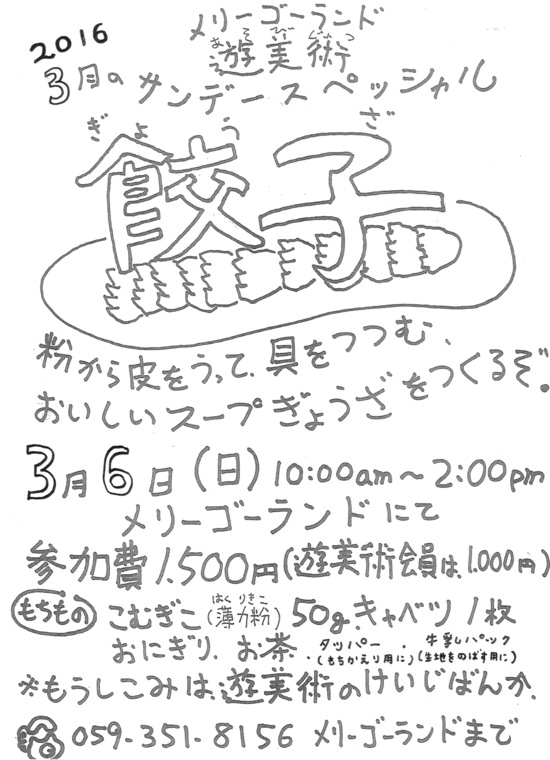 メリーゴーランド
2016
あそびじゅつ
遊美術
3月のサンデースペッシャル
ぎょうざ
餃子
粉から皮をうって、具をつつむ、
おいしいスープぎょうざをつくるぞ。
3月6日(日)10:00am~2:00pm
メリーゴーランドにて
参加費1.500円(遊美術会員は、1.000円)
はくりきこ
もちもの こむぎこ(薄力粉)50g.キャベツ1枚
おにぎり、お茶、タッパー(もちかえり用に)、牛乳パック(生地をのばす用に)
※もうしこみは、遊美術のけいじばんか、
059-351-8156 メリーゴーランドまで